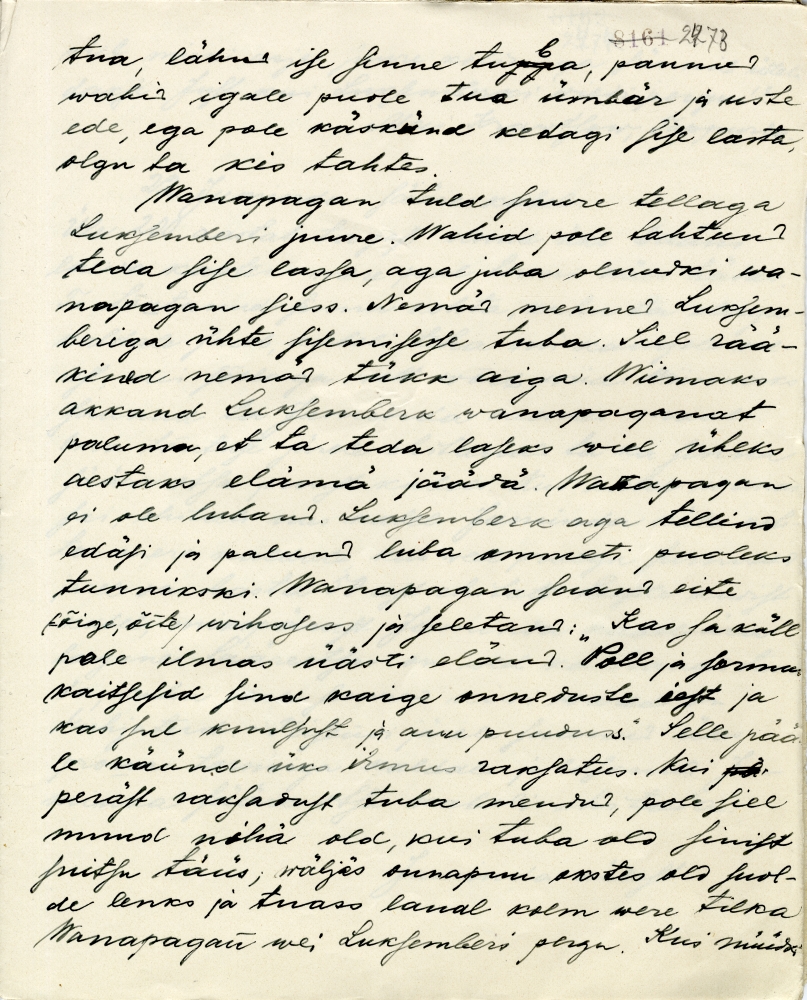 8161 2273
tua, lähnd ise sinne tuppa, pannud
wahid igale puole tua ümbär ja uste
ede, ega pole käskünd kedagi sise lasta,
olgu ta kis tahtes.
Wanapagan tuld suure tellaga
Luksemberi juure. Wahid pole tahtund
teda sise lassa, aga juba olnudki wa-
napagan siess. Nemäd menned Luksem-
beriga ühte sisemisesse tuba. Siel rää-
kined nemäd tükk aiga. Wiimaks
akkand Luksemberk wanapaganat
paluma, et ta teda laseks wiel üheks
aestaks elämä jäädä. Wanapagan
ei ole luband. Luksemberk aga tellind
edäsi ja palund luba ommeti puoleks
tunnikski. Wanapagan saand eite
(õige, õite) wihasess ja seletand: „Kas sa küll
pole ilmas üästi eländ. Poll ja sormus
kaitsesid sind kaige onneduste iest ja
kas sul kuulsust ja auu puuduss." Selle pää-
le käünd üks irmus raksatus. Kui
peräst raksadust tuba mendud, pole siel
muud nähä old, kui tuba old sinist
suitsu täüs; wäljäs ounapuu okstes old suol-
de lenks ja tuass laual kolm were tilka
Wanapagan wei Luksemberi porgu. Kui nüüdki